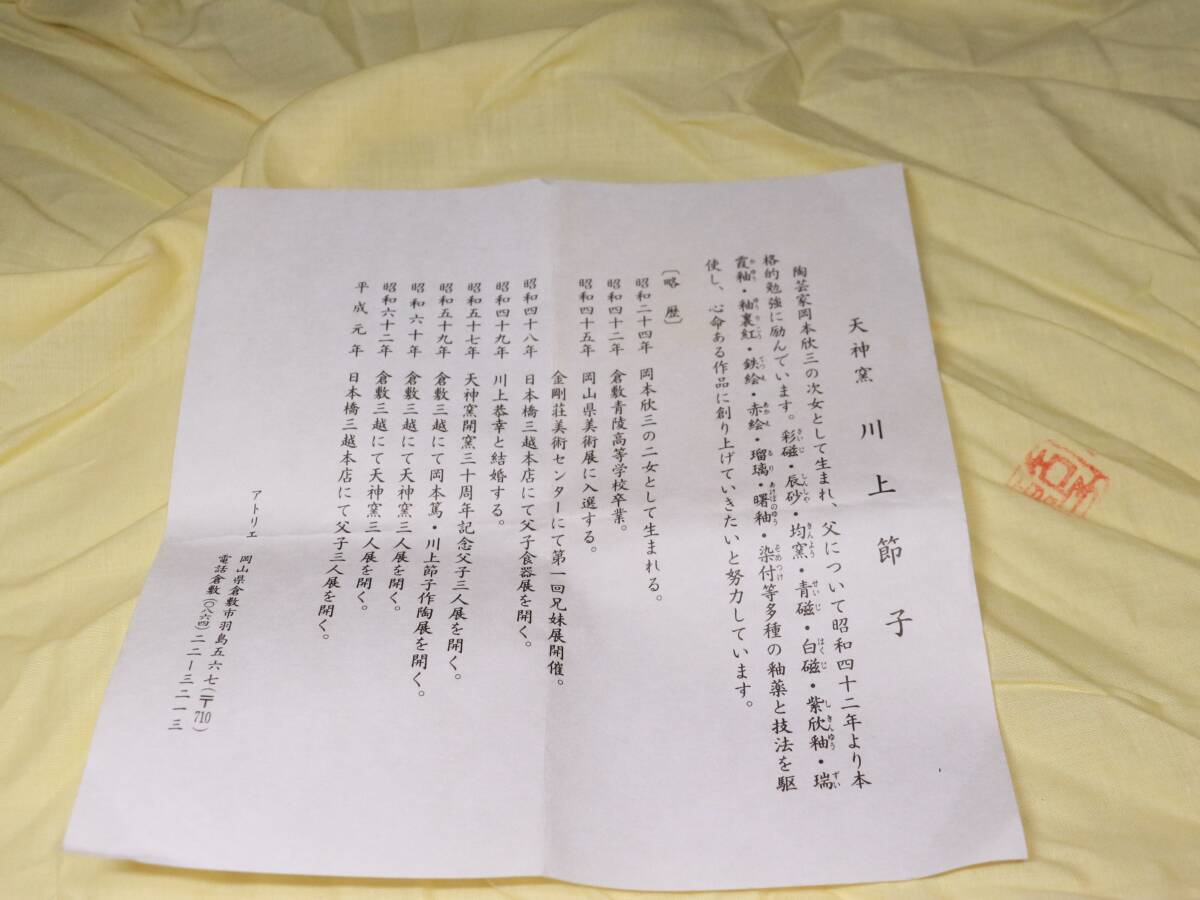 天神窯 川上節子
陶芸家岡本欣三の次女として生まれ、父について昭和四十二年より本
格的勉強に励んでいます。彩磁・辰砂・均窯・青磁・白磁・紫欣釉・瑞
霞釉・釉裏紅・鉄絵・赤絵・瑠璃・曙釉・染付等多種の釉薬と技法を駆
使し、心命ある作品に創り上げていきたいと努力しています。
〔略歴〕
昭和二十四年 岡本欣三の二女として生まれる。
昭和四十二年 倉敷青陵高等学校卒業。
昭和四十五年 岡山県美術展に入選する。
金剛荘美術センターにて第一回兄妹展開催。
昭和四十八年 日本橋三越本店にて父子食器展を開く。
昭和四十九年 川上恭幸と結婚する。
昭和五十七年 天神窯開窯三十周年記念父子三人展を開く。
昭和五十九年 倉敷三越にて岡本篤・川上節子作陶展を開く。
昭和六十年 倉敷三越にて天神窯三人展を開く。
昭和六十二年 倉敷三越にて天神窯三人展を開く。
平成元年 日本橋三越本店にて父子三人展を開く。
アトリエ 岡山県倉敷市羽島五六七(〒710)
電話倉敷(〇八六四)二二ー三二一三